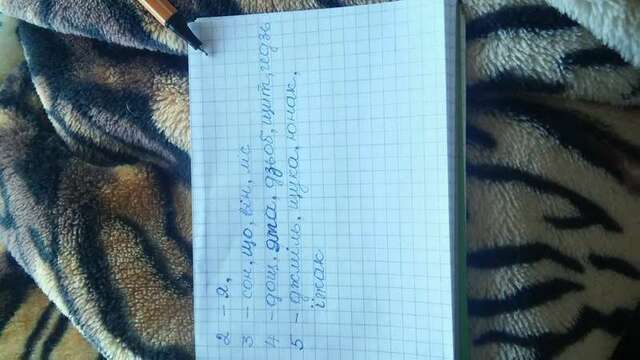 2 – я,
3 – сон, що, він, ліс
4 – дощ, яма, дзьоб, щит, гедзь
5 – джміль, щука, юнак,
їжак